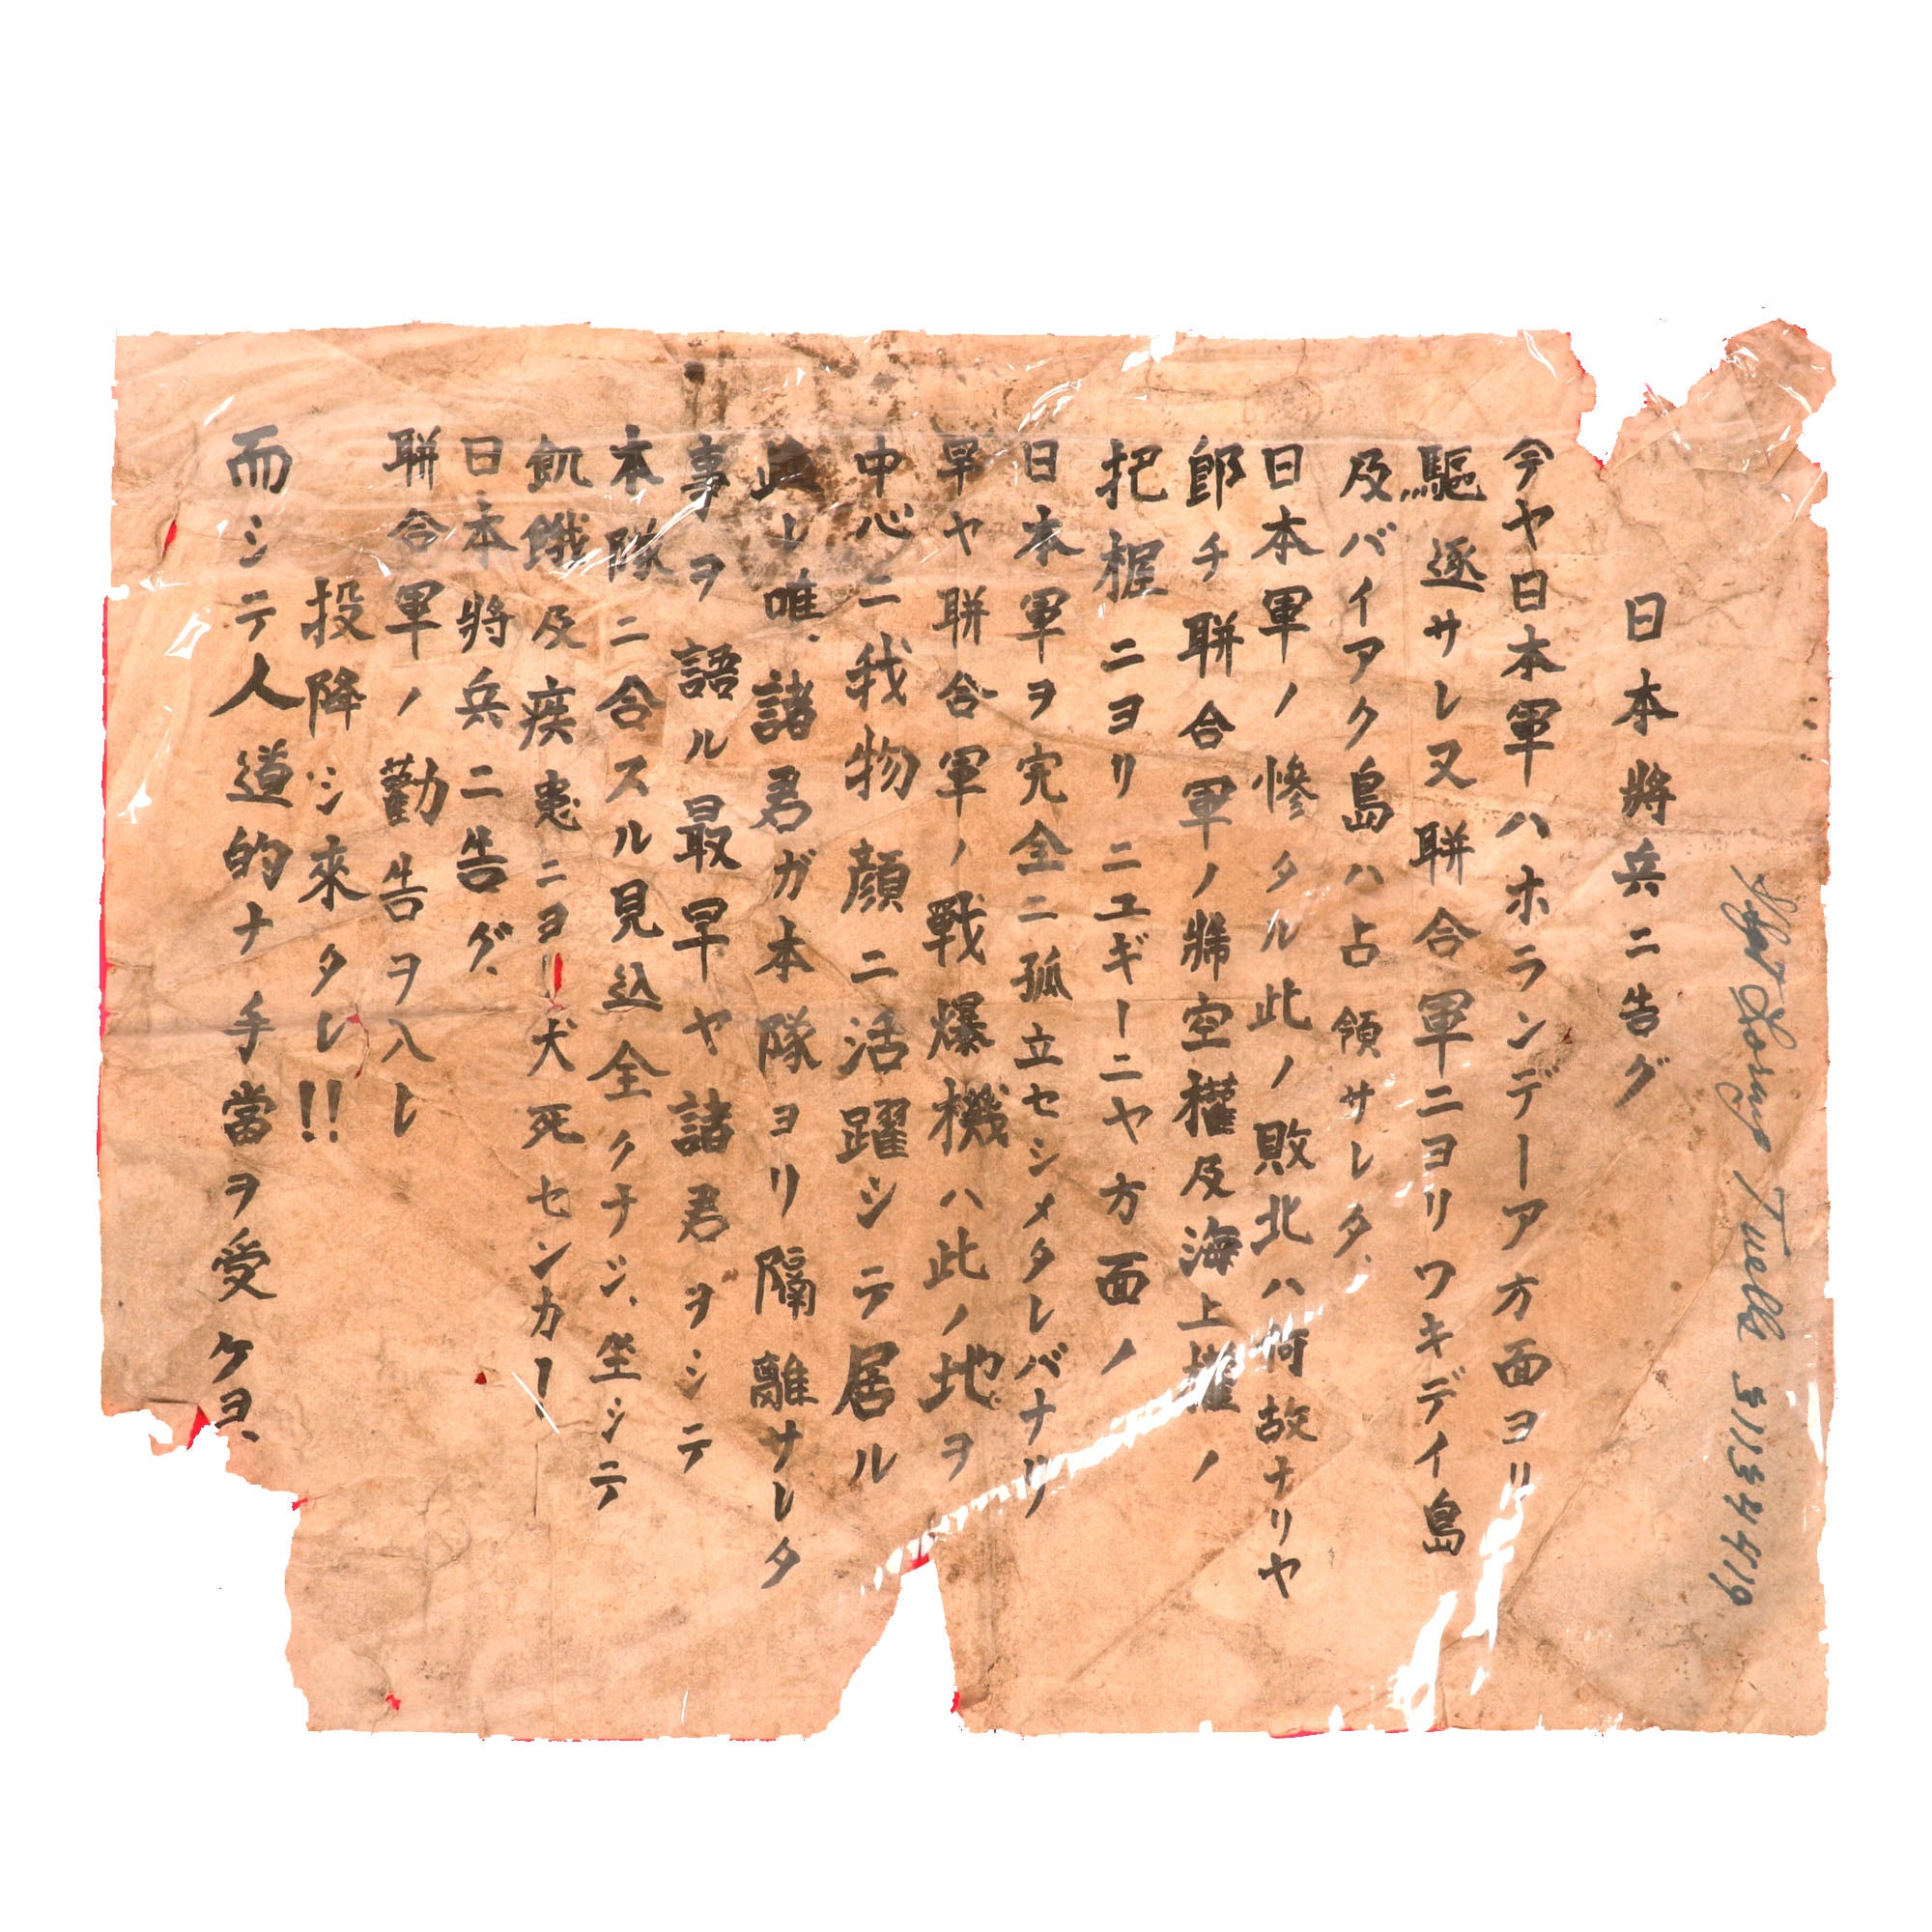 日本將兵ニ告グ
今ヤ日本軍ハホランデーア方面ヨリ
驅逐サレ又聯合軍ニヨリワキデイ島
及バイアク島ハ占領サレタ、
日本軍ノ慘タル此ノ敗北ハ何故ナリヤ
即チ聯合軍ノ制空權及海上權ノ
把握ニヨリニユギーニヤ方面ノ
日本軍ヲ完全ニ孤立セシメタレバナリ
早ヤ聯合軍ノ戰爆機ハ此ノ地ヲ
中心ニ我物顔ニ活躍シテ居ル
此レ唯、諸君ガ本隊ヨリ隔離サレタ
事ヲ語ル最早ヤ諸君ヲシテ
本隊ニ合スル見込全クナシ、坐シテ
飢餓及疾患ニヨリ犬死センカー
日本將兵ニ告グ、
聯合軍ノ勸告ヲ入レ
投降シ來タレ!!
而シテ人道的ナ手當ヲ受ケヨ、
31134419